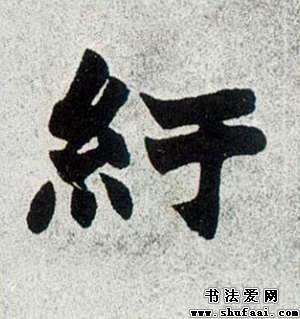 紆
书法爱网
www.shufaai.com